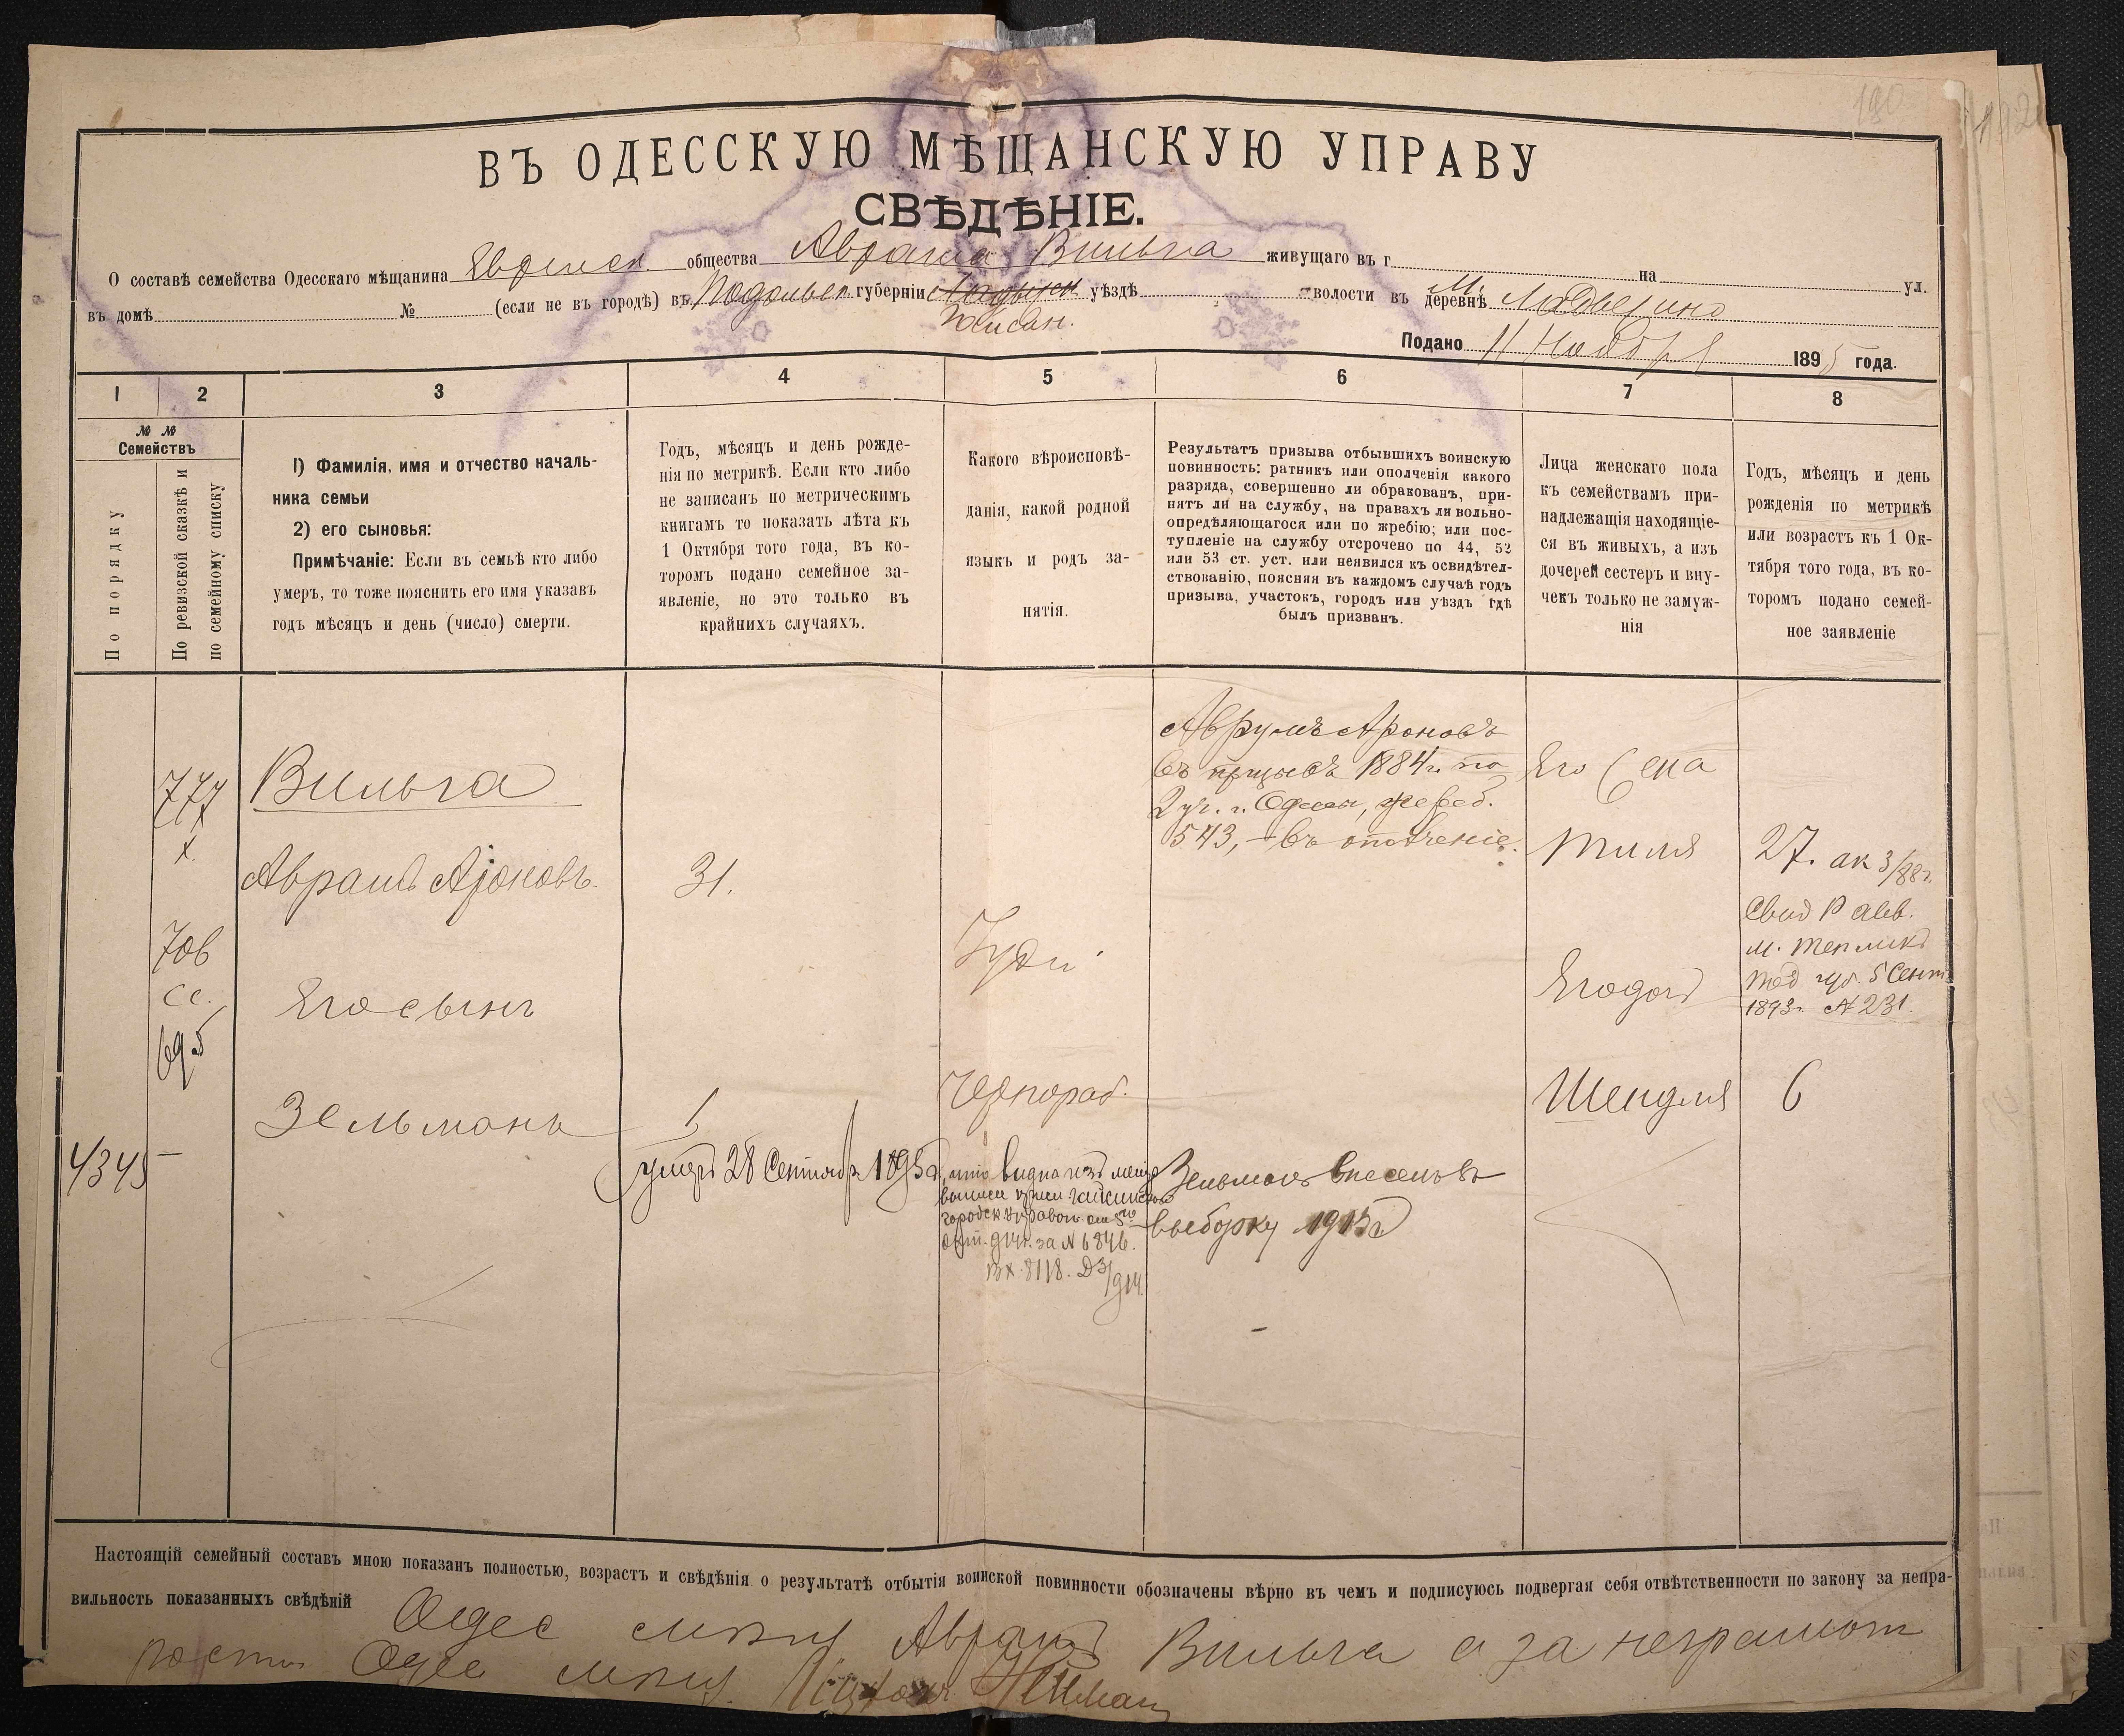 190
192
ВЪ ОДЕССКУЮ МѢЩАНСКУЮ УПРАВУ
СВѢДѢНІЕ.
О составѣ семейства Одесскаго мѣщанина Еврейск. общества Аврама Вильга живущаго въ г на ул.
въ домѣ № (если не въ городѣ) въ Подольск губерніи уѣздѣ волости въ деревнѣ М.
Подано 11 Ноября 1895 года.
1 2 3 4 5 6 7 8
№ №
Семействъ
По порядку
По ревизской сказкѣ и
по семейному списку
1) Фамилія, имя и отчество началь-
ника семьи
2) его сыновья:
Примѣчаніе: Если въ семьѣ кто либо
умеръ, то тоже пояснить его имя указавъ
годъ мѣсяцъ и день (число) смерти.
Годъ, мѣсяцъ и день рожде-
нія по метрикѣ. Если кто либо
не записанъ по метрическимъ
книгамъ то показать лѣта къ
1 Октября того года, въ ко-
торомъ подано семейное за-
явленіе, но это только въ
крайнихъ случаяхъ.
Какого вѣроисповѣ-
данія, какой родной
языкъ и родъ за-
нятія.
Результатъ призыва отбывшихъ воинскую
повинность: ратникъ или ополченія какого
разряда, совершенно ли обракованъ, при-
нятъ ли на службу, на правахъ ли вольно-
опредѣляющагося или по жребію; или пос-
тупленіе на службу отсрочено по 44, 52
или 53 ст. уст. или неявился къ освидѣтел-
ствованію, поясняя въ каждомъ случаѣ годъ
призыва, участокъ, городъ или уѣздъ гдѣ
былъ призванъ.
Лица женскаго пола
къ семействамъ при-
надлежащія находящіе-
ся въ живыхъ, а изъ
дочерей сестеръ и вну-
чекъ только не замуж-
нія
Годъ, мѣсяцъ и день
рожденія по метрикѣ
или возрастъ къ 1 Ок-
тября того года, въ ко-
торомъ подано семей-
ное заявленіе
777
х
706
сс.
695
4345 —
Вильга
Аврамъ Ароновъ
Его сынъ
Зельманъ
31.
1
умеръ 28 Сентября 1895г, что видно изъ
городск. управою от 5го
окт. 914г. за № 6846.
Вх. 8118. Д3/914
Іуде
Чернораб.
Аврумъ Ароновъ
въ призывъ 1884г. по
2 уч. г. Одессы, жереб.
543, – въ ополченіе.
Зельманъ внесенъ въ
выборку 1915г
Его
Тиля
Его доч
Шендля
27. ак 3/88г.
Свид Р авв.
м. Теплика
Под губ. 5 Сент
1893г. № 231.
6
Настоящій семейный составъ мною показанъ полностью, возрастъ и свѣдѣнія о результатѣ отбытія воинской повинности обозначены вѣрно въ чемъ и подписуюсь подвергая себя отвѣтственности по закону за непра-
вильность показанныхъ свѣдѣній Одес мѣщ Аврамъ Вильга а за неграмот
ности Одес мѣщ